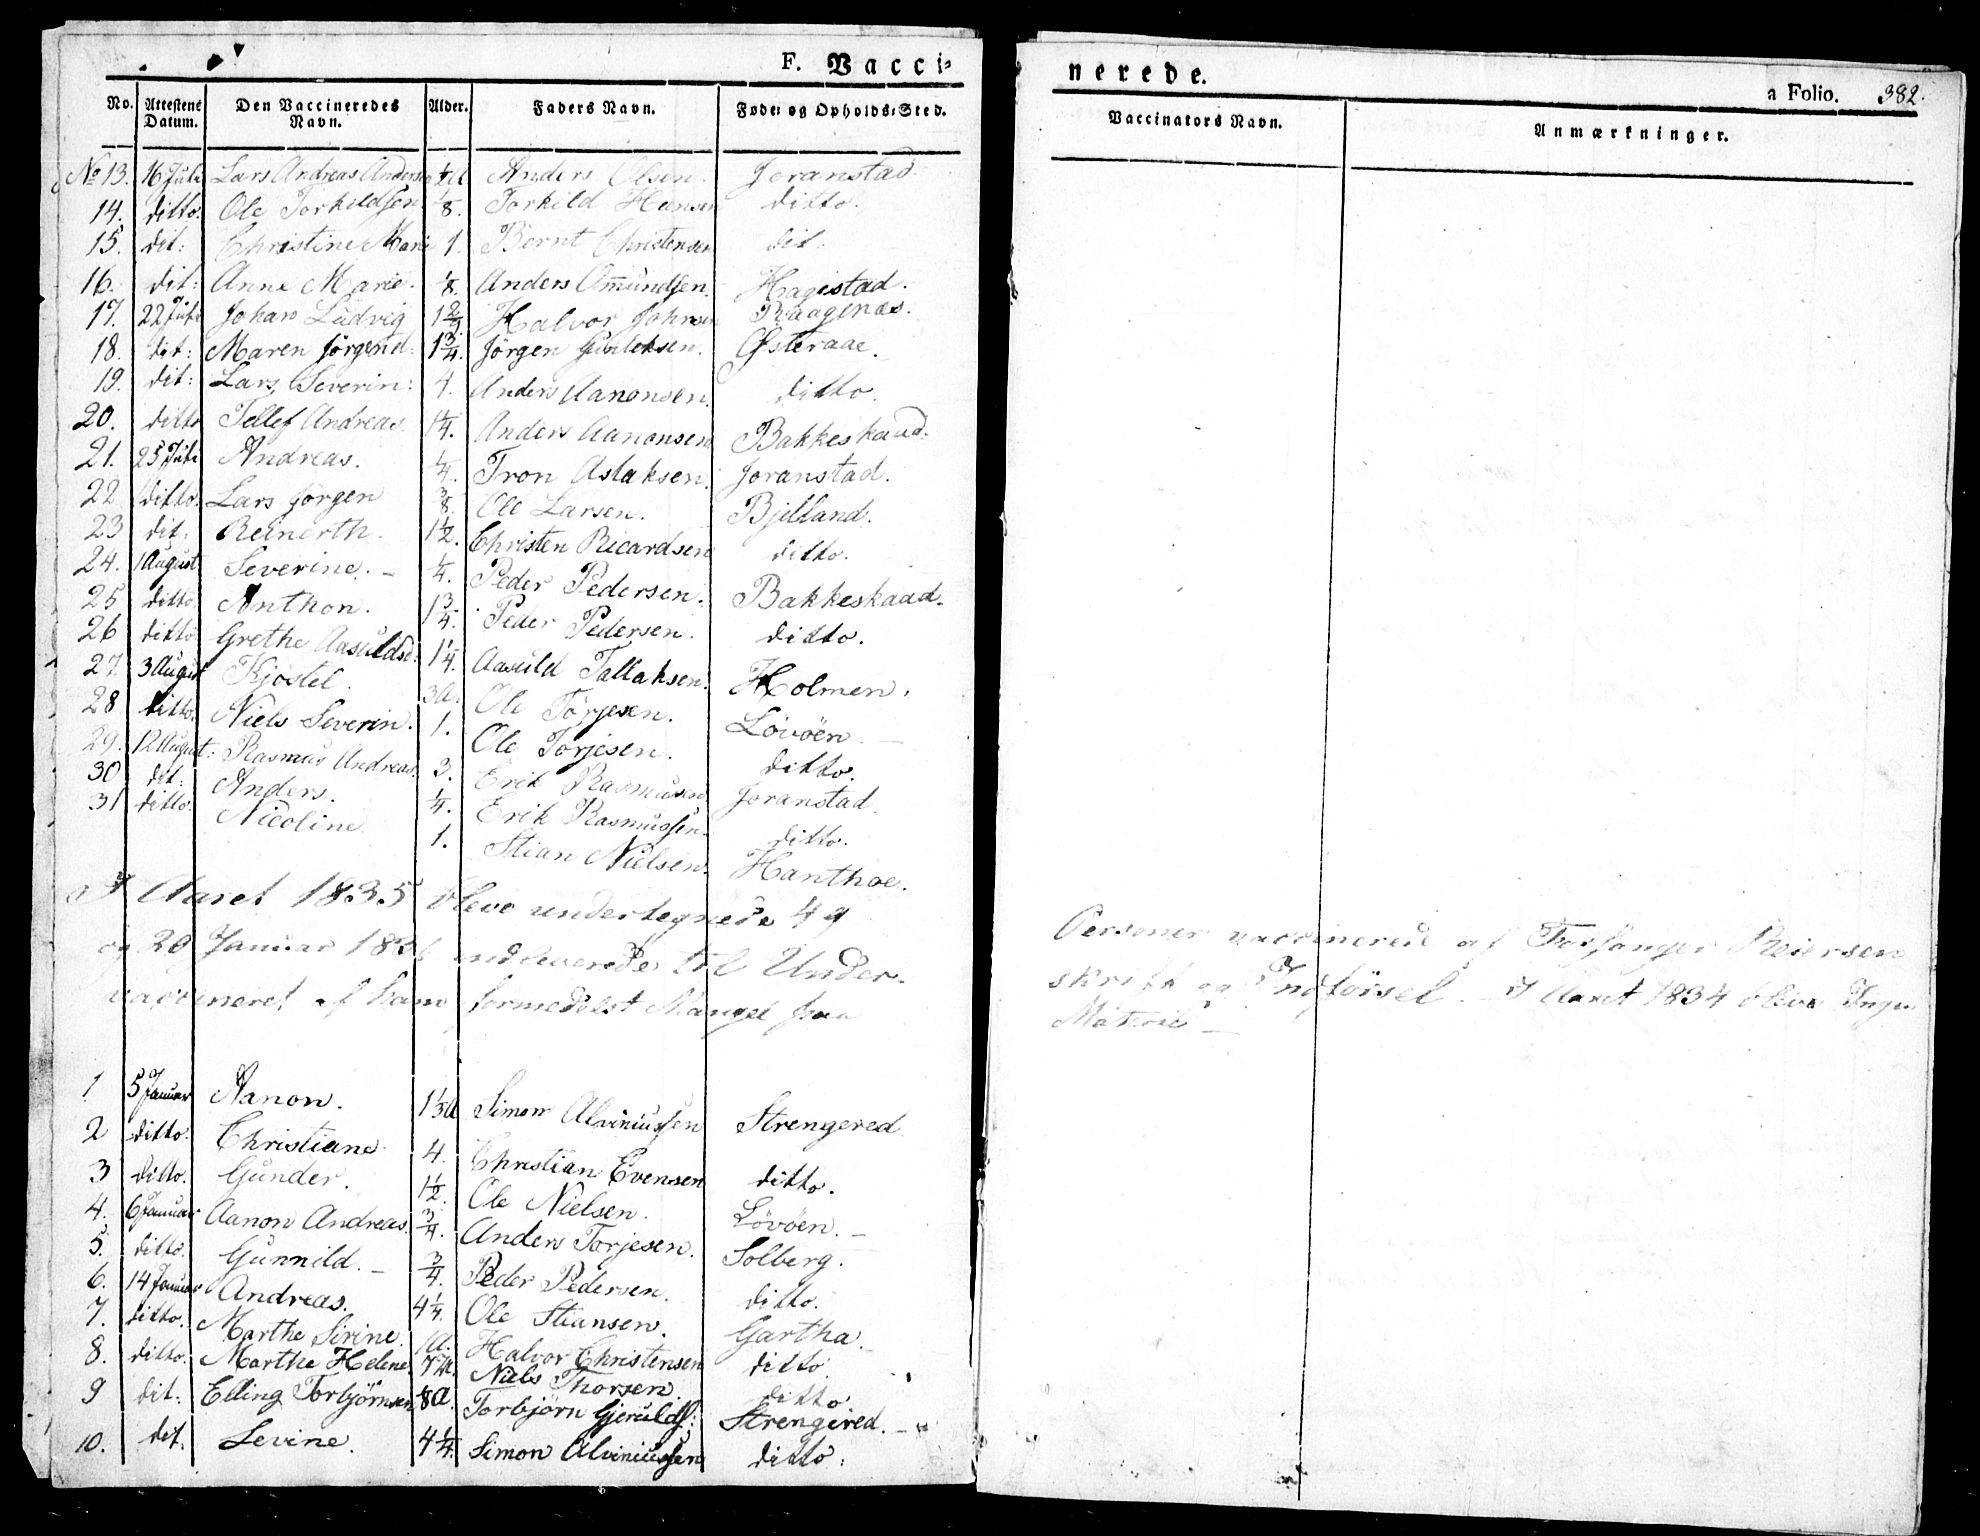 F. Vacci=
nerede.
a Folio. 382.
No. Attestens Datum. Den Vaccineredes Navn. Alder. Faders Navn. Føde= og Opholds=Sted. Vaccinators Navn. Anmærkninger.
No 13. 16 Juli Lars Andreas Anders Olsen. Joranstad
14. ditto. Ole Torkildsen 1/8. Torkild Hansen ditto.
15. dit: Christine Marie 1. Bernt Christensen dit:
16. dit: Anne Marie. 1/8. Anders Amundsen. Hagestad.
17. 22 Juli Johan Ludvig Halvor Johnsen Raagenæs.
18. dit: Maren Jörgend: 1 3/4. Jörgen Gunleksen. Østeraae.
19. dit: Lars Severin: 4. Anders Aanonsen. ditto.
20. ditto Tellef Andreas. 1 1/4. Anders Aanonsen Bakkeskaad.
21. 25 Juli Andreas. 1/4. Tron Aslaksen. Joranstad.
22 ditto. Lars Jörgen 3/8. Ole Larsen. Bjelland.
23 dit. Reinerth. 1 1/2. Christen Ricardsen ditto.
24. 1 August Severine. – 1/4. Peder Pedersen. Bakkeskaad.
25 ditto. Anthon. 1 3/4. Peder Pedersen. ditto.
26 ditto Grethe Aasuldsd: 1 1/4. Aasuld Tallaksen. Holmen.
27. 3 August Kjöstel. 3 a. Ole Törjesen. Lövöen. –
28 ditto. Niels Severin. 1. Ole Torjesen. ditto.
29. 12 August. Rasmus Andreas. 3. Erik Rasmussen Joranstad
30 dit: Anders. 1/4. Erik Rasmussen. ditto.
31 ditto. Nicoline 1. Stian Nielsen. Hanthoe.
I Aaret 1835 bleve undertegnede 49 Personer vaccinerede af Forsanger Reiersen
og 29 Januar 1836 indleverede til Under= skrift og Indförsel. – I Aaret 1834 bleve Ingen
vaccineret af ham formedelst Mangel paa Materie –
1 5 Januar Aanon. 1 1/3 a Simon Alviniussen Strengered
2 ditto. Christiane. 4. Christian Evensen ditto.
3 ditto. Gunder. 1 1/2. Ole Nielsen. Lövöen. –
4. 6 Januar Aanon Andreas. 3/4. Anders Torjesen. Solberg.
5. ditto. Gunnild. – 3/4. Peder Pedersen. ditto.
6. 14 Januar Andreas. 4 1/4. Ole Stiansen. Gartha. –
7. ditto. Marthe Sirine. Halvor Christensen ditto
8. ditto. Marthe Helene. Niels Thorsen. ditto.
9 dit: Elling Torbjörnsen Torbjörn Gjeruldss: Strengered. –
10. dit. Sevine. 4 1/4. Simon Alviniussen ditto.